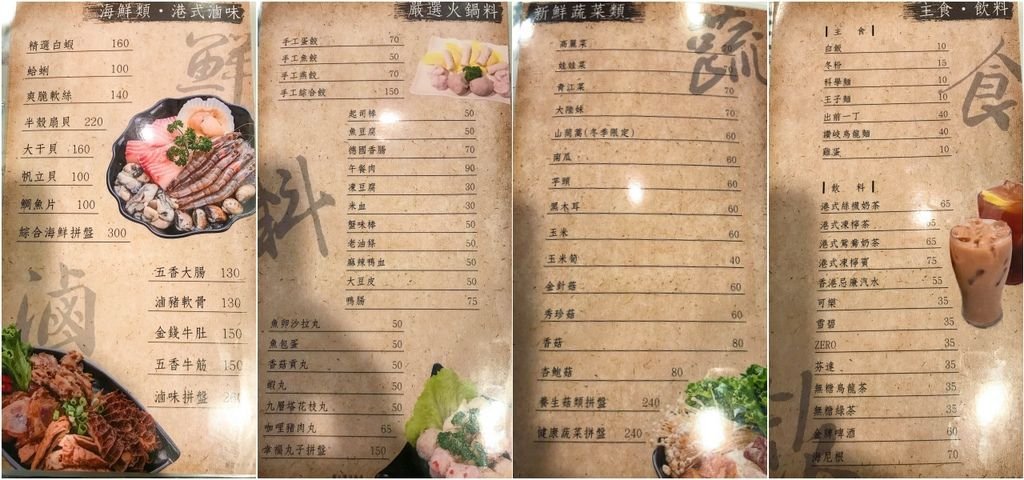 海鮮類・港式滷味
鮮
精選白蝦 160
蛤蜊 100
爽脆軟絲 140
半殼扇貝 220
大干貝 160
帆立貝 100
鯛魚片 100
綜合海鮮拼盤 300
滷
五香大腸 130
滷豬軟骨 130
金錢牛肚 150
五香牛筋 150
滷味拼盤
嚴選火鍋料
料
手工蛋餃 70
手工魚餃 50
手工燕餃 70
手工綜合餃 150
起司棒 50
魚豆腐 50
德國香腸 70
午餐肉 90
凍豆腐 30
米血 30
蟹味棒 50
老油條 50
麻辣鴨血 50
大豆皮 50
鴨腸 75
魚卵沙拉丸 50
魚包蛋 50
香菇貢丸 50
蝦丸 50
九層塔花枝丸 50
咖哩豬肉丸 65
幸福丸子拼盤 150
新鮮蔬菜類
蔬
高麗菜 70
娃娃菜
青江菜 70
大陸妹 70
山茼蒿(冬季限定)
南瓜 60
芋頭
黑木耳
玉米
玉米筍 40
金針菇 60
秀珍菇 60
香菇 80
杏鮑菇 80
養生菇類拼盤 240
健康蔬菜拼盤 240
主食・飲料
食
主食
白飯 10
冬粉 15
科學麵 10
王子麵 10
出前一丁 40
讚岐烏龍麵 40
雞蛋 10
飲料
港式絲襪奶茶 65
港式凍檸茶 65
港式鴛鴦奶茶 65
港式凍檸賓 75
香港忌廉汽水 55
可樂 35
雪碧 35
ZERO 35
芬達 35
無糖烏龍茶 35
無糖綠茶 35
金牌啤酒 60
海尼根 70